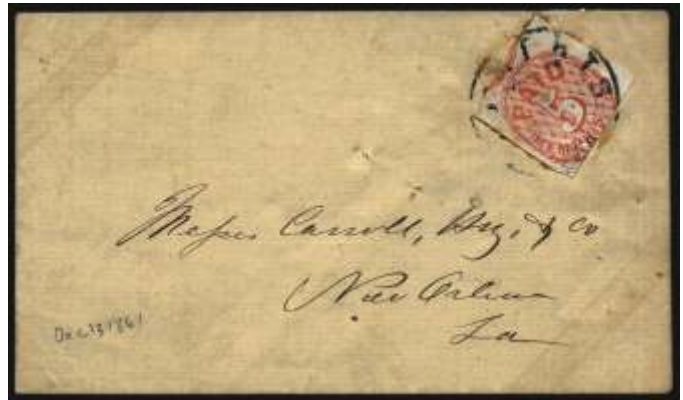 PAID
5
Messrs Carroll, Hoy, & Co
New Orleans
La
Dec 13 1861